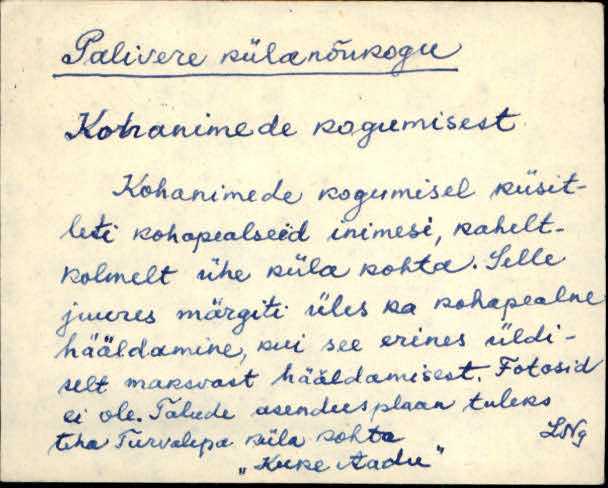 Palivere külanõukogu
Kohanimede kogumisest
Kohanimede kogumisel küsit-
leti kohapealseid inimesi, kahelt-
kolmelt ühe küla kohta. Selle
juures märgiti üles ka kohapealne
hääldamine, kui see erines üldi-
selt maksvast hääldamisest. Fotosid
ei ole. Talude asendusplaan tuleks
teha Turvalepa küla kohta
"Kuke Aadu"